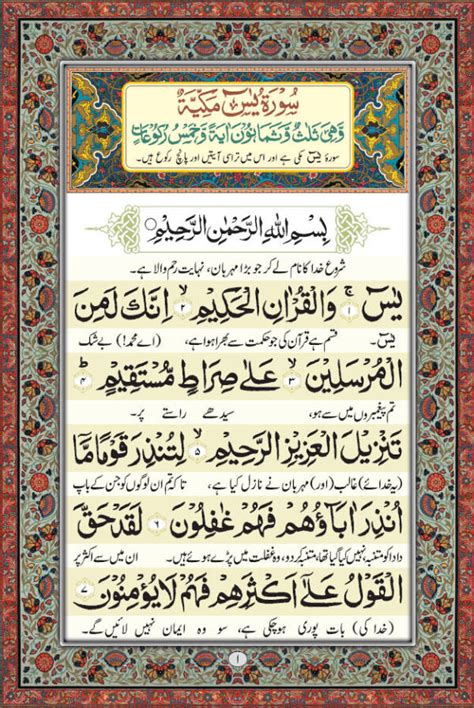 سُوْرَةُ يٰسٓ مَكِّيَّةٌ
وَهِيَ ثَلٰثٌ وَّثَمَانُوْنَ اٰيَةً وَّخَمْسُ رَكُوْعَاتٍ
سورۂ یٰسٓ مکی ہے اور اس میں تراسی آیتیں اور پانچ رکوع ہیں۔
بِسْمِ اللهِ الرَّحْمٰنِ الرَّحِيْمِ
شروع خدا کا نام لے کر جو بڑا مہربان، نہایت رحم والا ہے۔
يٰسٓ ۚ ١ وَالْقُرْاٰنِ الْحَكِيْمِ ۙ ٢ اِنَّكَ لَمِنَ
یٰسٓ۔ قسم ہے قرآن کی جو حکمت سے بھرا ہوا ہے، (اے محمدؐ!) بے شک
الْمُرْسَلِيْنَ ۙ ٣ عَلٰى صِرَاطٍ مُّسْتَقِيْمٍ ؕ ٤
تم پیغمبروں میں سے ہو، سیدھے راستے پر۔
تَنْزِيْلَ الْعَزِيْزِ الرَّحِيْمِ ۙ ٥ لِتُنْذِرَ قَوْمًا مَّا
(یہ خدائے) غالب (اور) مہربان نے نازل کیا ہے، تاکہ تم ان لوگوں کو جن کے باپ
اُنْذِرَ اٰبَآؤُهُمْ فَهُمْ غٰفِلُوْنَ ٦ لَقَدْ حَقَّ
دادا کو متنبہ نہیں کیا گیا تھا، متنبہ کر دو، وہ غفلت میں پڑے ہوئے ہیں۔ ان میں سے اکثر پر
الْقَوْلُ عَلٰٓى اَكْثَرِهِمْ فَهُمْ لَا يُؤْمِنُوْنَ ٧
(خدا کی) بات پوری ہو چکی ہے، سو وہ ایمان نہیں لائیں گے۔
١